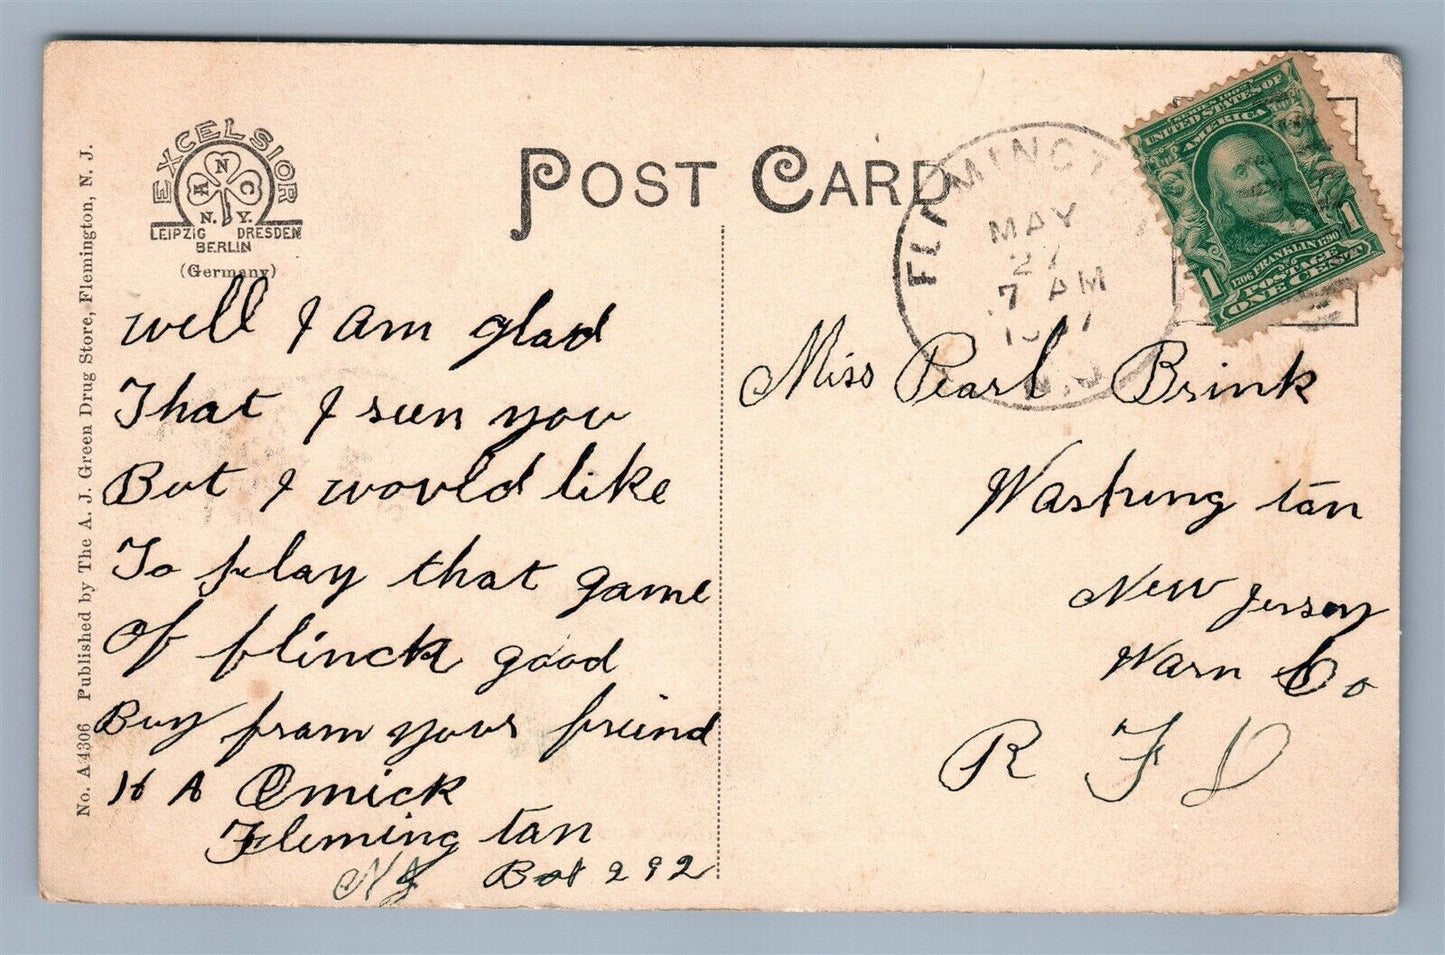 EXCELSIOR
A N C
N. Y.
LEIPZIG DRESDEN
BERLIN
(Germany)
No. A4306 Published by The A. J. Green Drug Store, Flemington, N. J.
POST CARD
FLEMINGT
MAY
27
7 AM
N.J.
SERIES 1902
UNITED STATES OF
AMERICA
1706 FRANKLIN 1790
POSTAGE
1 ONE CENT 1
well I am glad
That I seen you
But I would like
To play that game
Of flinck good
Buy fram your friend
H A Emick
Fleming tan
NJ Box 292
Miss Pearl Brink
Washing tan
New Jersey
Warn Co
R F D